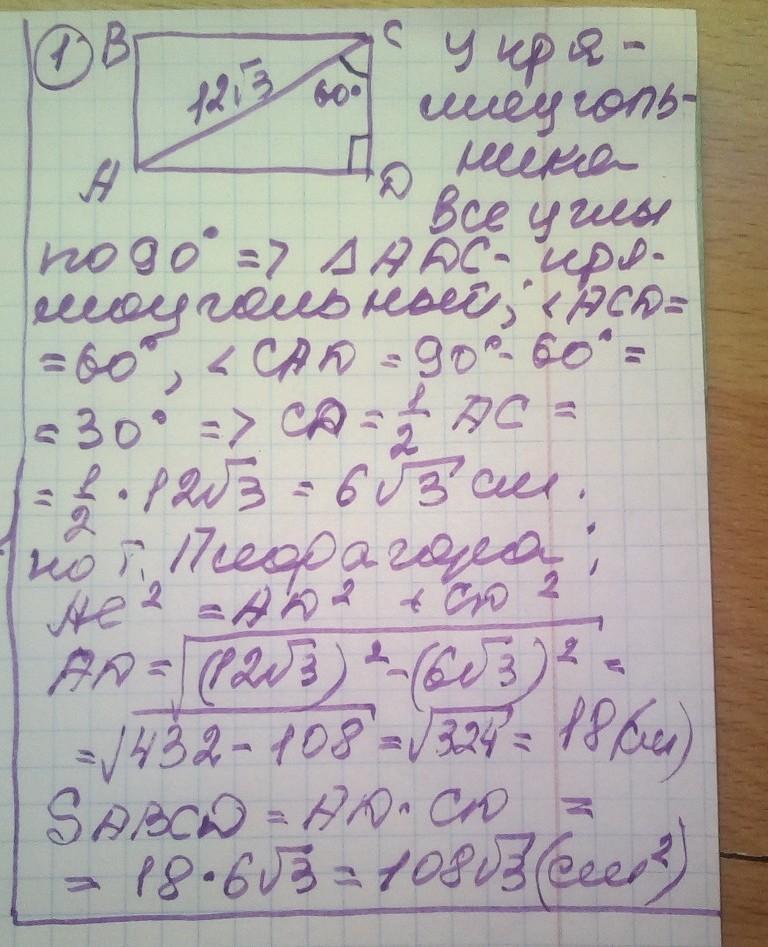 1 B C У пря-
12√3 60° моуголь-
A D ника
все углы
по 90° => ΔADC- пря-
моугольный; <ACD=
=60°, <CAD = 90°-60° =
= 30° => CD = 1/2 AC =
= 1/2 · 12√3 = 6√3 см.
по т. Пифагора:
AC² = AD² + CD²
AD = √(12√3)² - (6√3)² =
= √432 - 108 = √324 = 18 (см)
SABCD = AD · CD =
= 18 · 6√3 = 108√3 (см²)